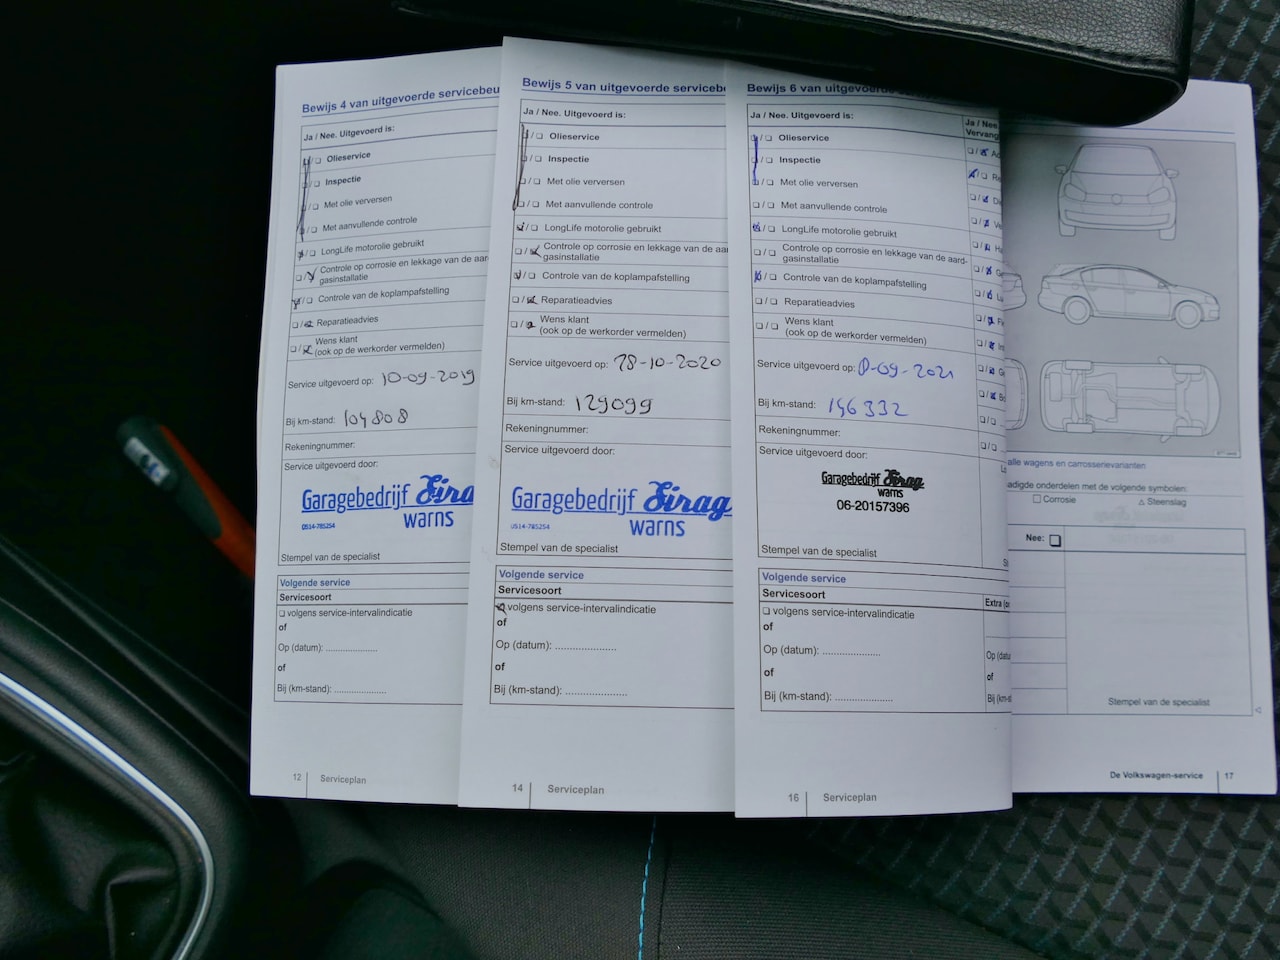 Bewijs 4 van uitgevoerde servicebeu
Ja / Nee. Uitgevoerd is:
Olieservice
Inspectie
Met olie verversen
Met aanvullende controle
LongLife motorolie gebruikt
Controle op corrosie en lekkage van de aar
gasinstallatie
Controle van de koplampafstelling
Reparatieadvies
Wens klant
(ook op de werkorder vermelden)
Service uitgevoerd op: 10-09-2019
Bij km-stand: 104808
Rekeningnummer:
Service uitgevoerd door:
Garagebedrijf Sirag
warns
0514-785254
Stempel van de specialist
Volgende service
Servicesoort
volgens service-intervalindicatie
of
Op (datum): ....................
of
Bij (km-stand): ....................
12 Serviceplan
Bewijs 5 van uitgevoerde servicebe
Ja / Nee. Uitgevoerd is:
Olieservice
Inspectie
Met olie verversen
Met aanvullende controle
LongLife motorolie gebruikt
Controle op corrosie en lekkage van de aar
gasinstallatie
Controle van de koplampafstelling
Reparatieadvies
Wens klant
(ook op de werkorder vermelden)
Service uitgevoerd op: 28-10-2020
Bij km-stand: 129099
Rekeningnummer:
Service uitgevoerd door:
Garagebedrijf Sirag
warns
0514-785254
Stempel van de specialist
Volgende service
Servicesoort
volgens service-intervalindicatie
of
Op (datum): ....................
of
Bij (km-stand): ....................
14 Serviceplan
Bewijs 6 van uitgevoerde
Ja / Nee. Uitgevoerd is:
Olieservice
Inspectie
Met olie verversen
Met aanvullende controle
LongLife motorolie gebruikt
Controle op corrosie en lekkage van de aard-
gasinstallatie
Controle van de koplampafstelling
Reparatieadvies
Wens klant
(ook op de werkorder vermelden)
Service uitgevoerd op: -09-2021
Bij km-stand: 146332
Rekeningnummer:
Service uitgevoerd door:
Garagebedrijf Sirag
warns
06-20157396
Stempel van de specialist
Volgende service
Servicesoort
volgens service-intervalindicatie
of
Op (datum): ....................
of
Bij (km-stand): ....................
16 Serviceplan
Ja / Nee.
Vervang
Extra (o
Op (datu
of
Bij (km-s
alle wagens en carrosserievarianten
adigde onderdelen met de volgende symbolen:
Corrosie Steenslag
Nee:
Stempel van de specialist
De Volkswagen-service 17